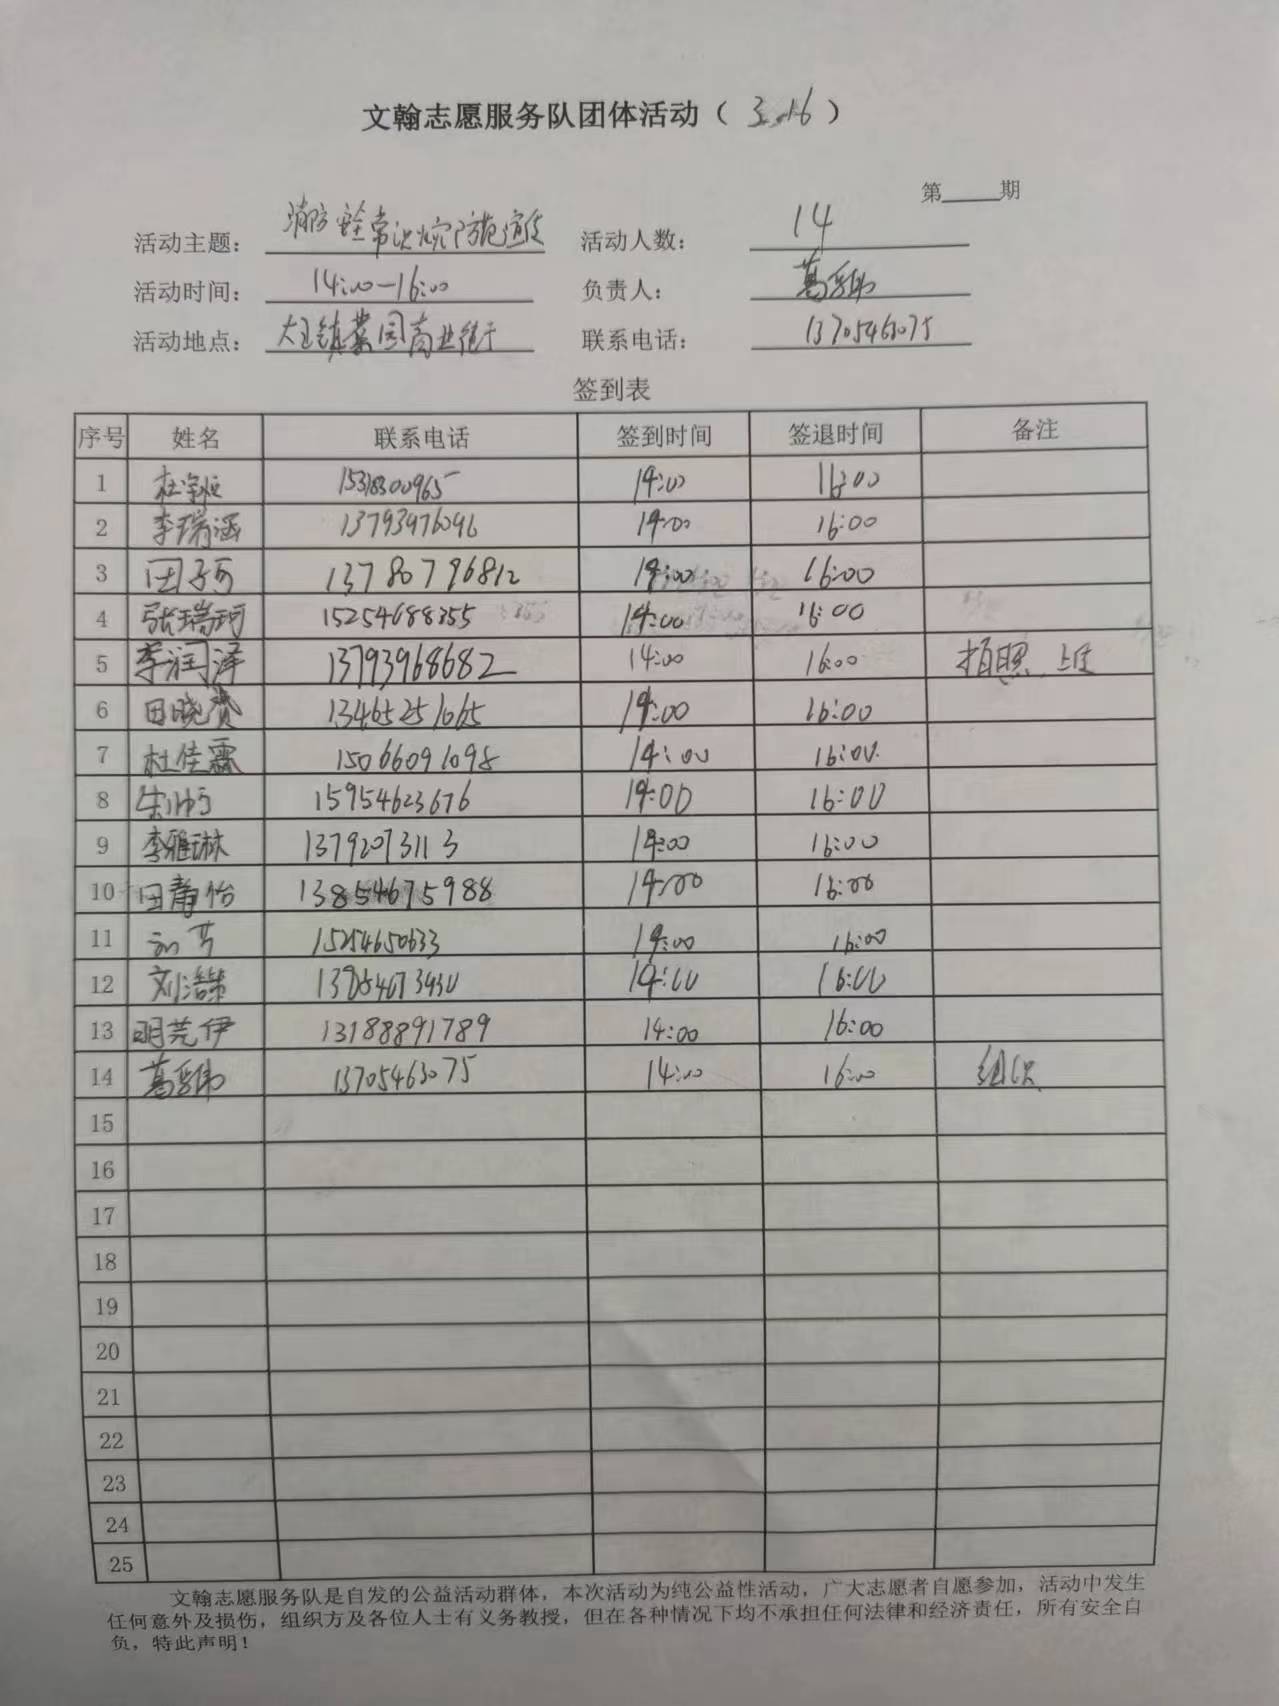 文翰志愿服务队团体活动（3.16）
第____期
活动主题：消防安全常识火灾防范宣传 活动人数：14
活动时间：14:00—16:00 负责人：
活动地点：大王镇菜园商业街 联系电话：13705463075
签到表
序号 姓名 联系电话 签到时间 签退时间 备注
1 15318300965 14:00 16:00
2 李瑞涵 13793976096 14:00 16:00
3 田子可 13780796812 14:00 16:00
4 张瑞珂 15254688355 14:00 16:00
5 李润泽 13793968682 14:00 16:00 拍照 上传
6 田晓赟 13465251665 14:00 16:00
7 杜佳霖 15066091098 14:00 16:00
8 15954623676 14:00 16:00
9 李雅琳 13792073113 14:00 16:00
10 田静怡 13854675988 14:00 16:00
11 15254650633 14:00 16:00
12 刘浩 14:00 16:00
13 明芫伊 13188891789 14:00 16:00
14 13705463075 14:00 16:00 组织
15
16
17
18
19
20
21
22
23
24
25
文翰志愿服务队是自发的公益活动群体，本次活动为纯公益性活动，广大志愿者自愿参加，活动中发生
任何意外及损伤，组织方及各位人士有义务教授，但在各种情况下均不承担任何法律和经济责任，所有安全自
负，特此声明！